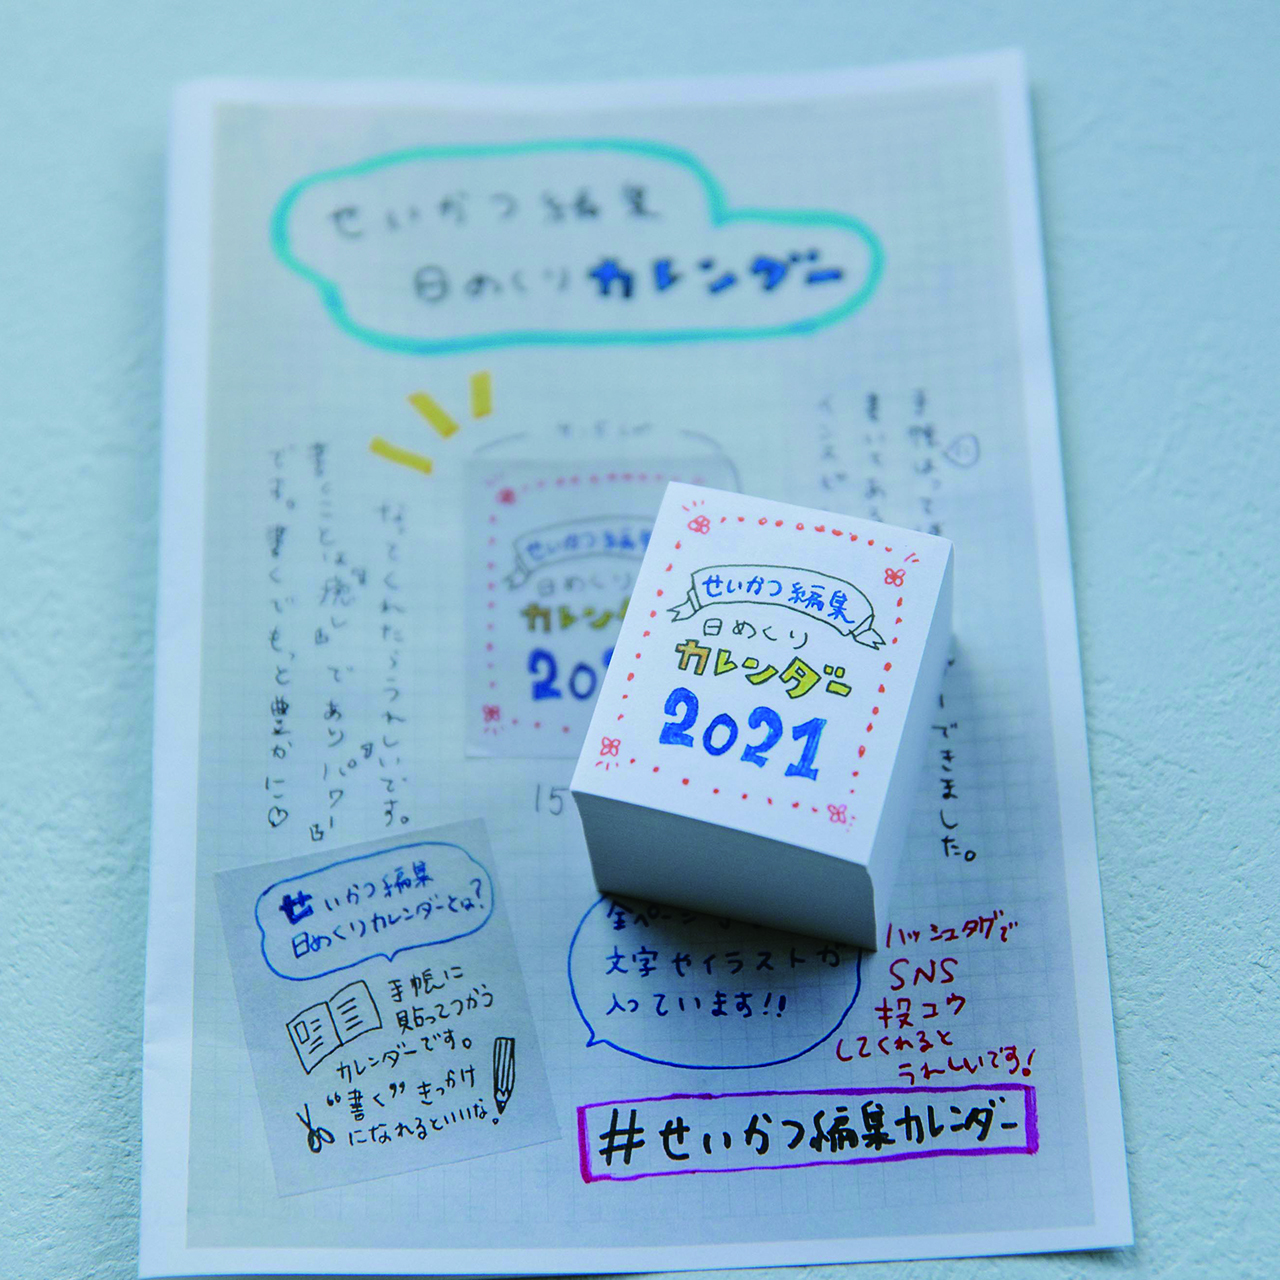 せいかつ編集
日めくりカレンダー
手帳はって
書いてあ
インスピ
できました。
せいかつ編集
日めくり
カレン
202
15
せいかつ編集
日めくり
カレンダー
2021
なってくれたらうれしいです。
書くことは癒し であり パワー
です。書くでもっと豊かに♡
せいかつ編集
日めくりカレンダーとは?
手帳に
貼ってつかう
カレンダーです。
“書く”きっかけ
になれるといいな。
全ページ
文字やイラストが
入っています!!
ハッシュタグで
SNS
投コウ
してくれると
うれしいです!
#せいかつ編集カレンダー